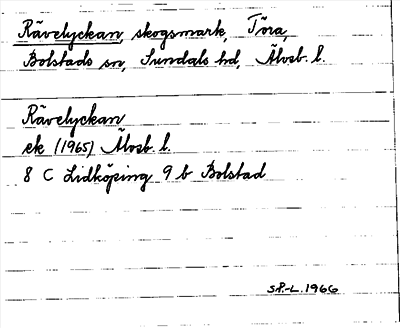 Rävelyckan, skogsmark, Töra,
Bolstads sn, Sundals hd, Älvsb. l.
Rävelyckan
ek (1965) Älvsb l.
8 C Lidköping 9 b Bolstad
S.P.-L. 1966